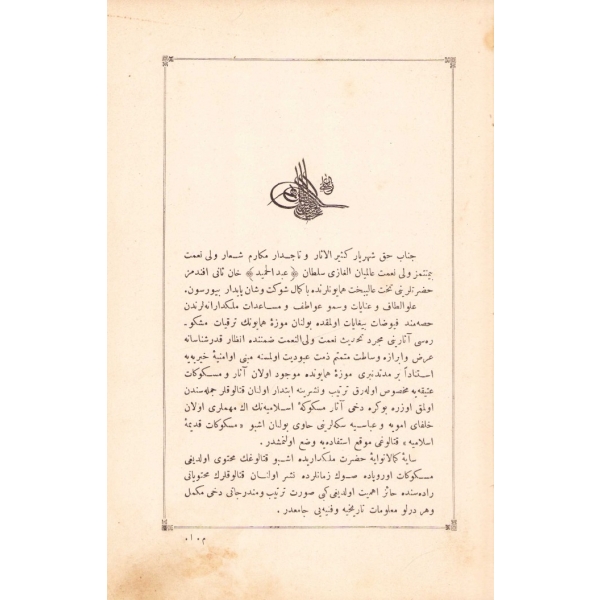 جناب حق شهریار کثیر الاثار و تاجدار مکارم شعار ولی نعمت
بیمنتمز ولی نعمت عالمیان الغازی سلطان ﴿ عبد الحمید ﴾ خان ثانی افندمز
حضرتلرینی تخت عالیبخت همایونلرنده با کمال شوکت وشان پایدار بیورسون.
علوالطاف و عنایات وسمو عواطف و مساعدات ملکدارانه‌لرندن
حصه‌مند فیوضات بیغایات اولمقده بولنان موزۀ همایونك ترقیات مشکو-
ره‌سی آثارینی مجرد تحدیث نعمت ولی‌النعمت ضمننده انظار قدرشناسانه
عرض وابرازه وساطت متمم ذمت عبودیت اولمسنه مبنی اوامنیۀ خیریه‌یه
استناداً بر مدتدنبری موزۀ همایونده موجود اولان آثار و مسکوکات
عتیقه‌یه مخصوص اوله‌رق ترتیب ونشرینه ابتدار اولنان قتالوقلر جمله‌سندن
اولمق اوزره بوکره دخی آثار مسکوکۀ اسلامیه‌نك اك مهملری اولان
خلفای امویه و عباسیه سکه‌لرینی حاوی بولنان اشبو « مسکوکات قدیمۀ
اسلامیه » قتالوغی موقع استفاده‌یه وضع اولنمشدر.
سایۀ کمالاتوایۀ حضرت ملکداریده اشبو قتالوغك محتوی اولدیغی
مسکوکات اوروپاده صوك زمانلرده نشر اولنان قتالوقلرك محتویاتی
راده‌سنده حائز اهمیت اولدیغی کبی صورت ترتیب ومندرجاتی دخی مکمل
وهر درلو معلومات تاریخیه وفنیه‌یی جامعدر.